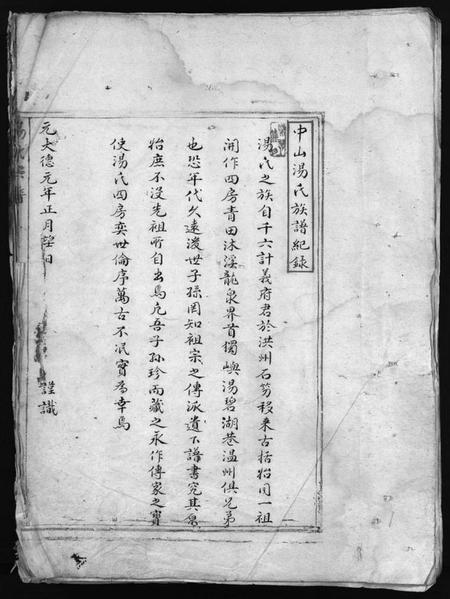 中山湯氏族譜紀錄
湯氏之族自千六計義府君於洪州石笏移来古括始同一祖
開作四房青田沐溪龍泉界首獨嶼湯碧湖巷温州俱兄弟
也恐年代久遠後世子孫罔知祖宗之傳派遺下譜書究其泉
始庶不没先祖所自出焉凡吾子孫珍而藏之永作傳家之寶
使湯氏四房奕世倫序萬古不泯實為幸焉
元大德元年正月望日
謹識